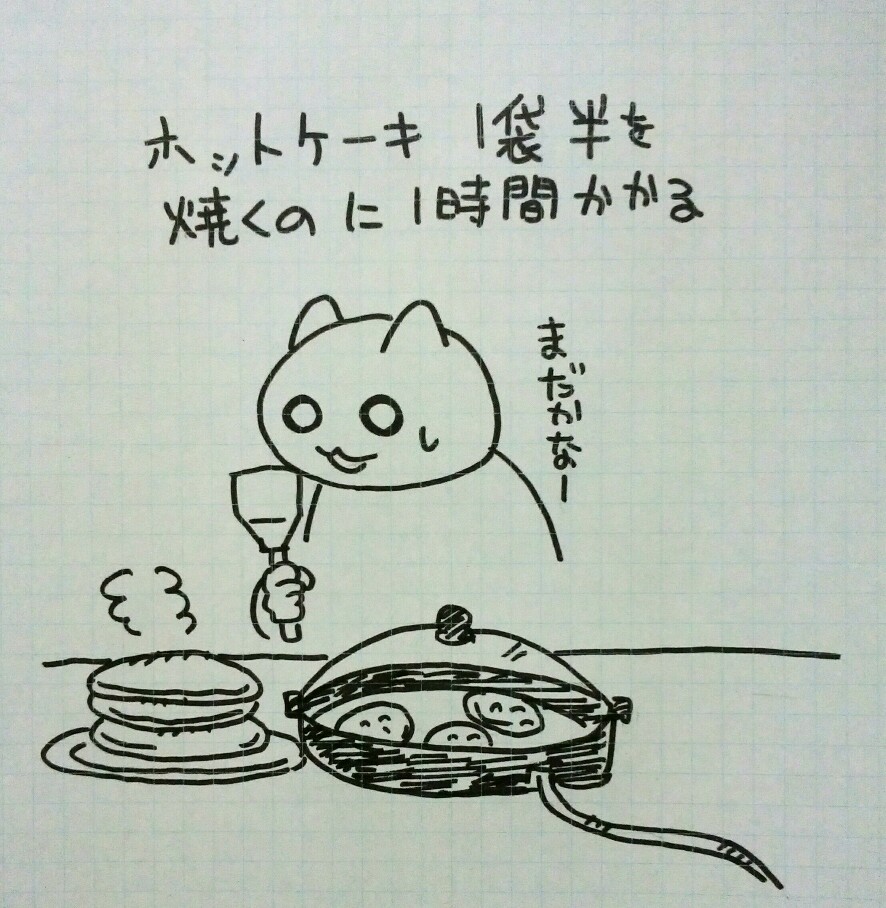 ホットケーキ 1袋半を
焼くのに1時間かかる
まだかなー